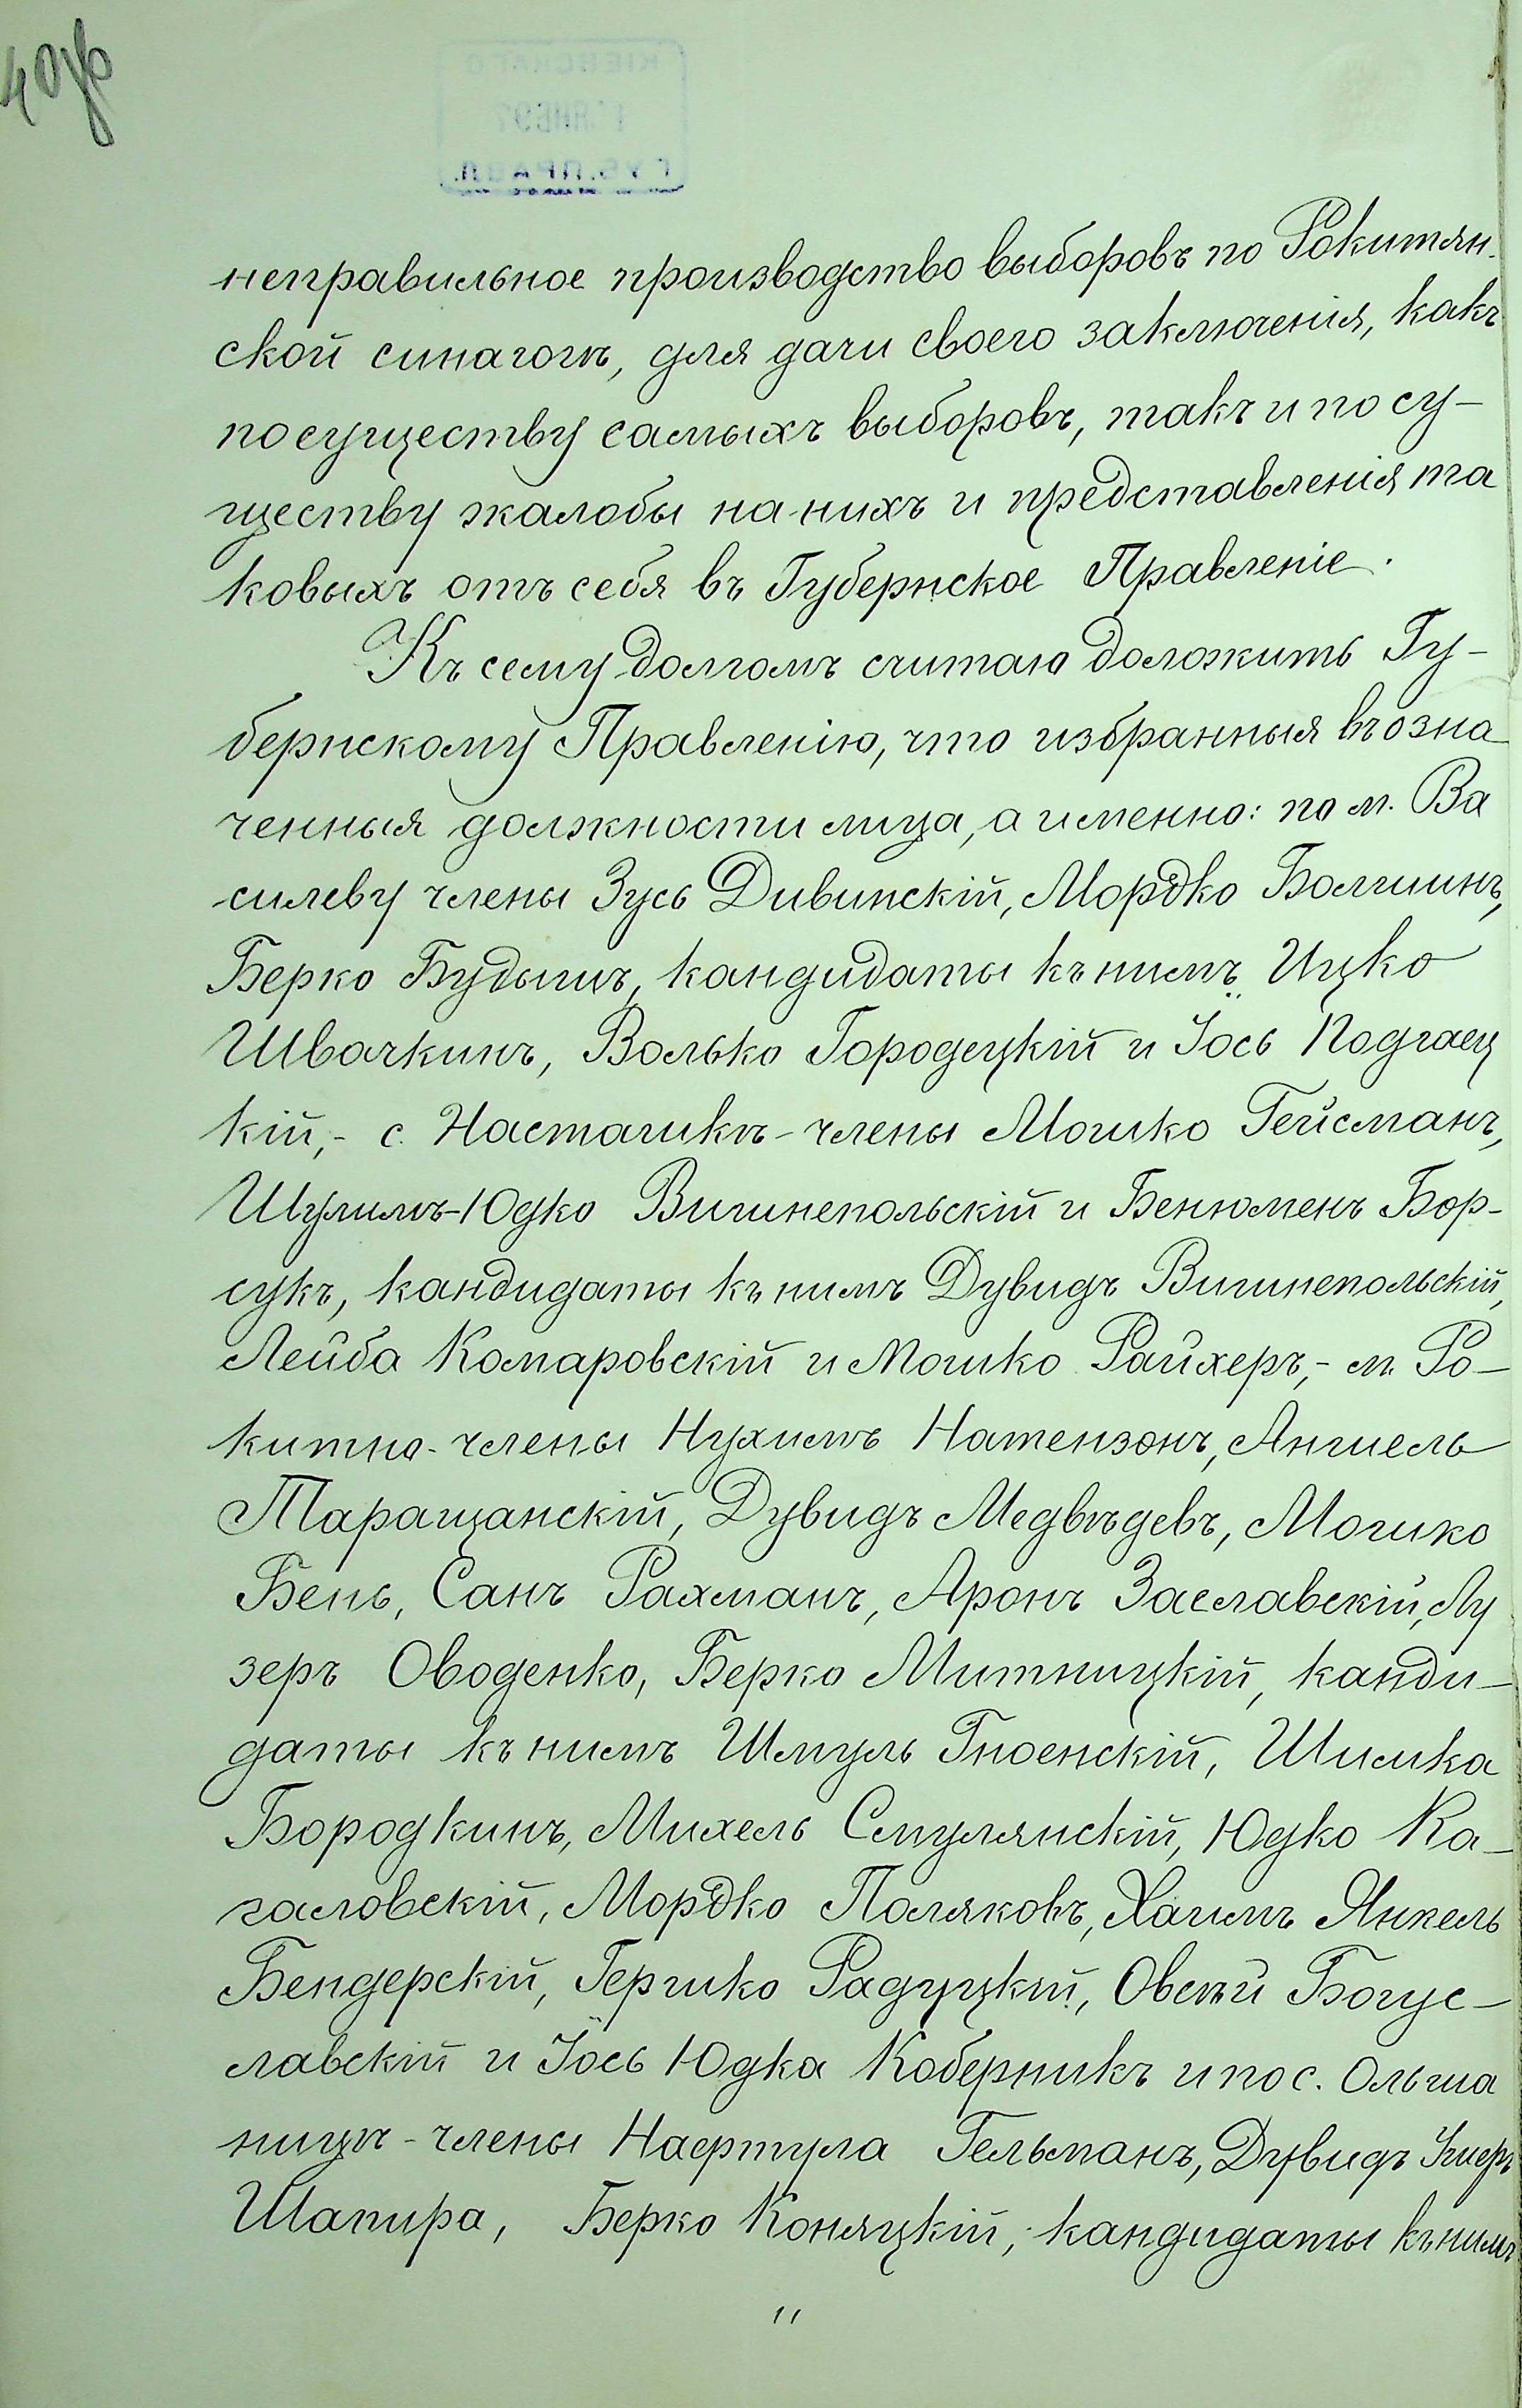 4 об
неправильное производство выборовъ по Рокитян-
ской синагогѣ, для дачи своего заключенія, какъ
по существу самыхъ выборовъ, такъ и по су-
ществу жалобы на нихъ и представленія та
ковыхъ отъ себя въ Губернское Правленіе.
Къ сему долгомъ считаю доложить Гу-
бернскому Правленію, что избранныя въ озна
ченныя должности лица, а именно: по м. Ва
силеву члены Зусь Дивинскій, Мордко Болшинъ,
Берко Будышъ, кандидаты къ нимъ Ицко
Швачкинъ, Волько Городецкій и Іось Подгаец
кій,- с. Насташкѣ - члены Мошко Гейсманъ,
Шулимъ-Юдко Вишнепольскій и Бенюменъ Бор-
сукъ, кандидаты къ нимъ Дувидъ Вишнепольскій,
Лейба Комаровскій и Мошко Райхеръ,- м. Ро-
китно - члены Нухимъ Натензонъ, Аншель
Таращанскій, Дувидъ Медвѣдевъ, Мошко
Бень, Санъ Рахманъ, Аронъ Заславскій, Лу
зеръ Оводенко, Берко Митницкій, канди-
даты къ нимъ Шмуль Гноенскій, Шимка
Бородкинъ, Михель Смулянскій, Юдко Ка-
галовскій, Мордко Поляковъ, Хаимъ Янкель
Бендерскій, Гершко Радуцкій, Овсѣй Богус-
лавскій и Іось Юдка Коберникъ и по с. Ольша
ницѣ - члены Нафтула Гельманъ, Дувидъ
Шапира, Берко Коняцкій, кандидаты къ нимъ